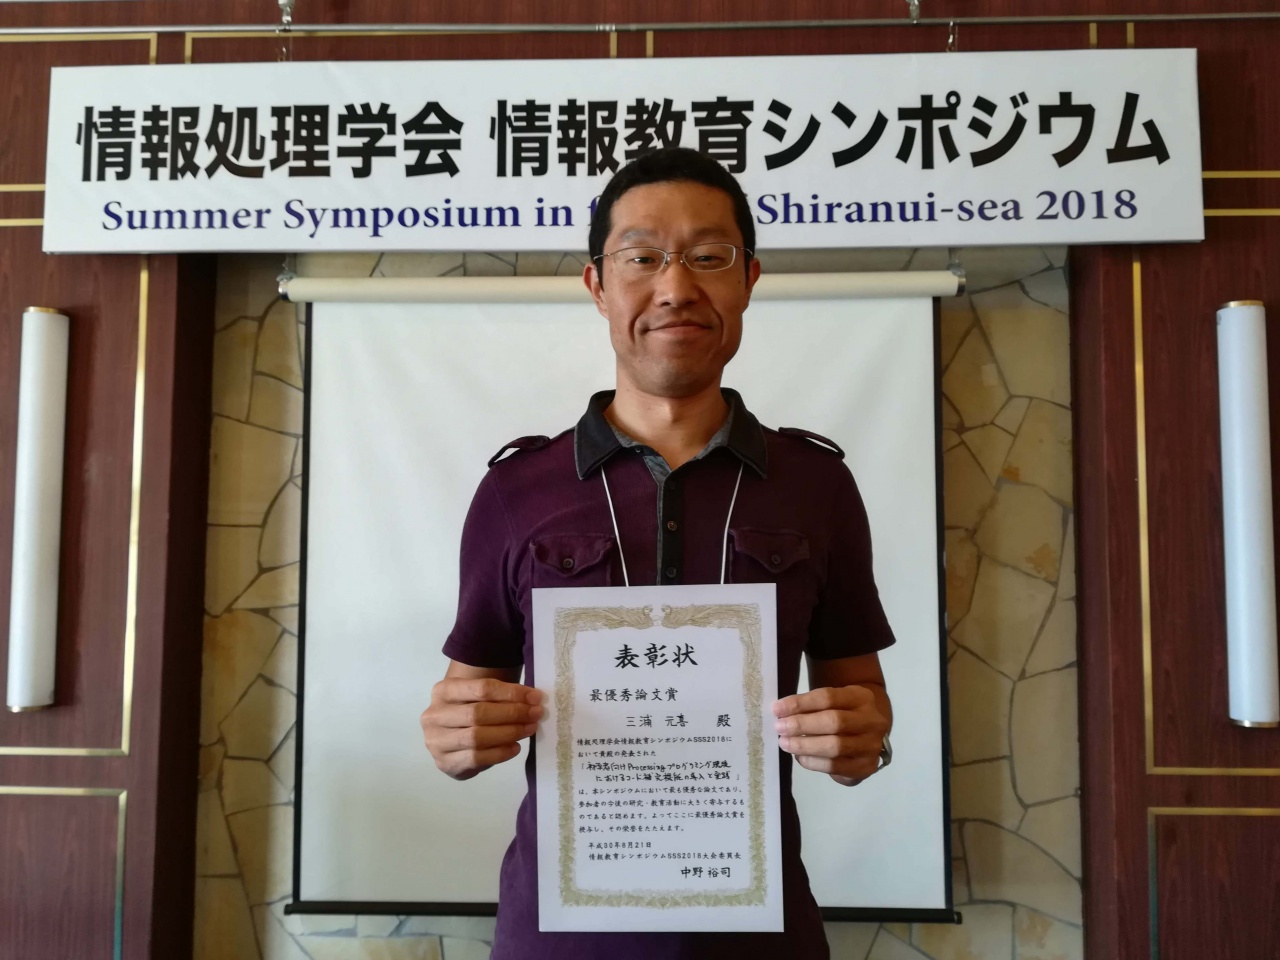 情報処理学会 情報教育シンポジウム
Summer Symposium in Shiranui-sea 2018
表彰状
最優秀論文賞
三浦 元喜 殿
情報処理学会情報教育シンポジウムSSS2018に
おいて貴殿の発表された
「初学者向けProcessingプログラミング環境
におけるコード補完機能の導入と実践」
は、本シンポジウムにおいて最も優秀な論文であり、
参加者の今後の研究・教育活動に大きく寄与するも
のであると認めます。よってここに最優秀論文賞を
授与し、その栄誉をたたえます。
平成30年8月21日
情報教育シンポジウムSSS2018大会委員長
中野 裕司